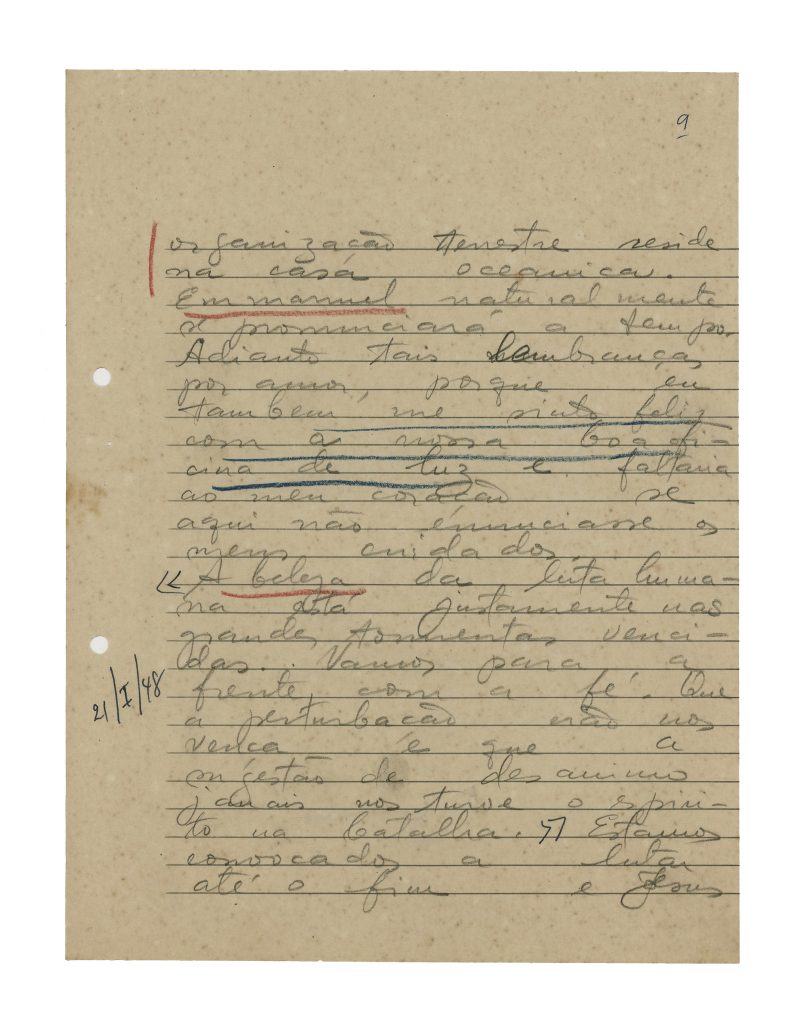 9
organização terrestre reside
na casa oceanica.
Emmanuel naturalmente
se pronunciará a tempo.
Adianto tais lembranças
por amor, porque eu
tambem me sinto feliz
com a nossa boa ofi-
cina de luz e faltaria
ao meu coração se
aqui não enunciasse os
meus cuidados.
« A beleza da luta huma-
na está justamente nas
grandes tormentas venci-
das. . Vamos para a
21/I/48
frente, com a fé. Que
a perturbação não nos
vença e que a
sugestão de desanimo
jamais nos turve o espiri-
to na batalha. » Estamos
convocados a lutar
até o fim e Jesus